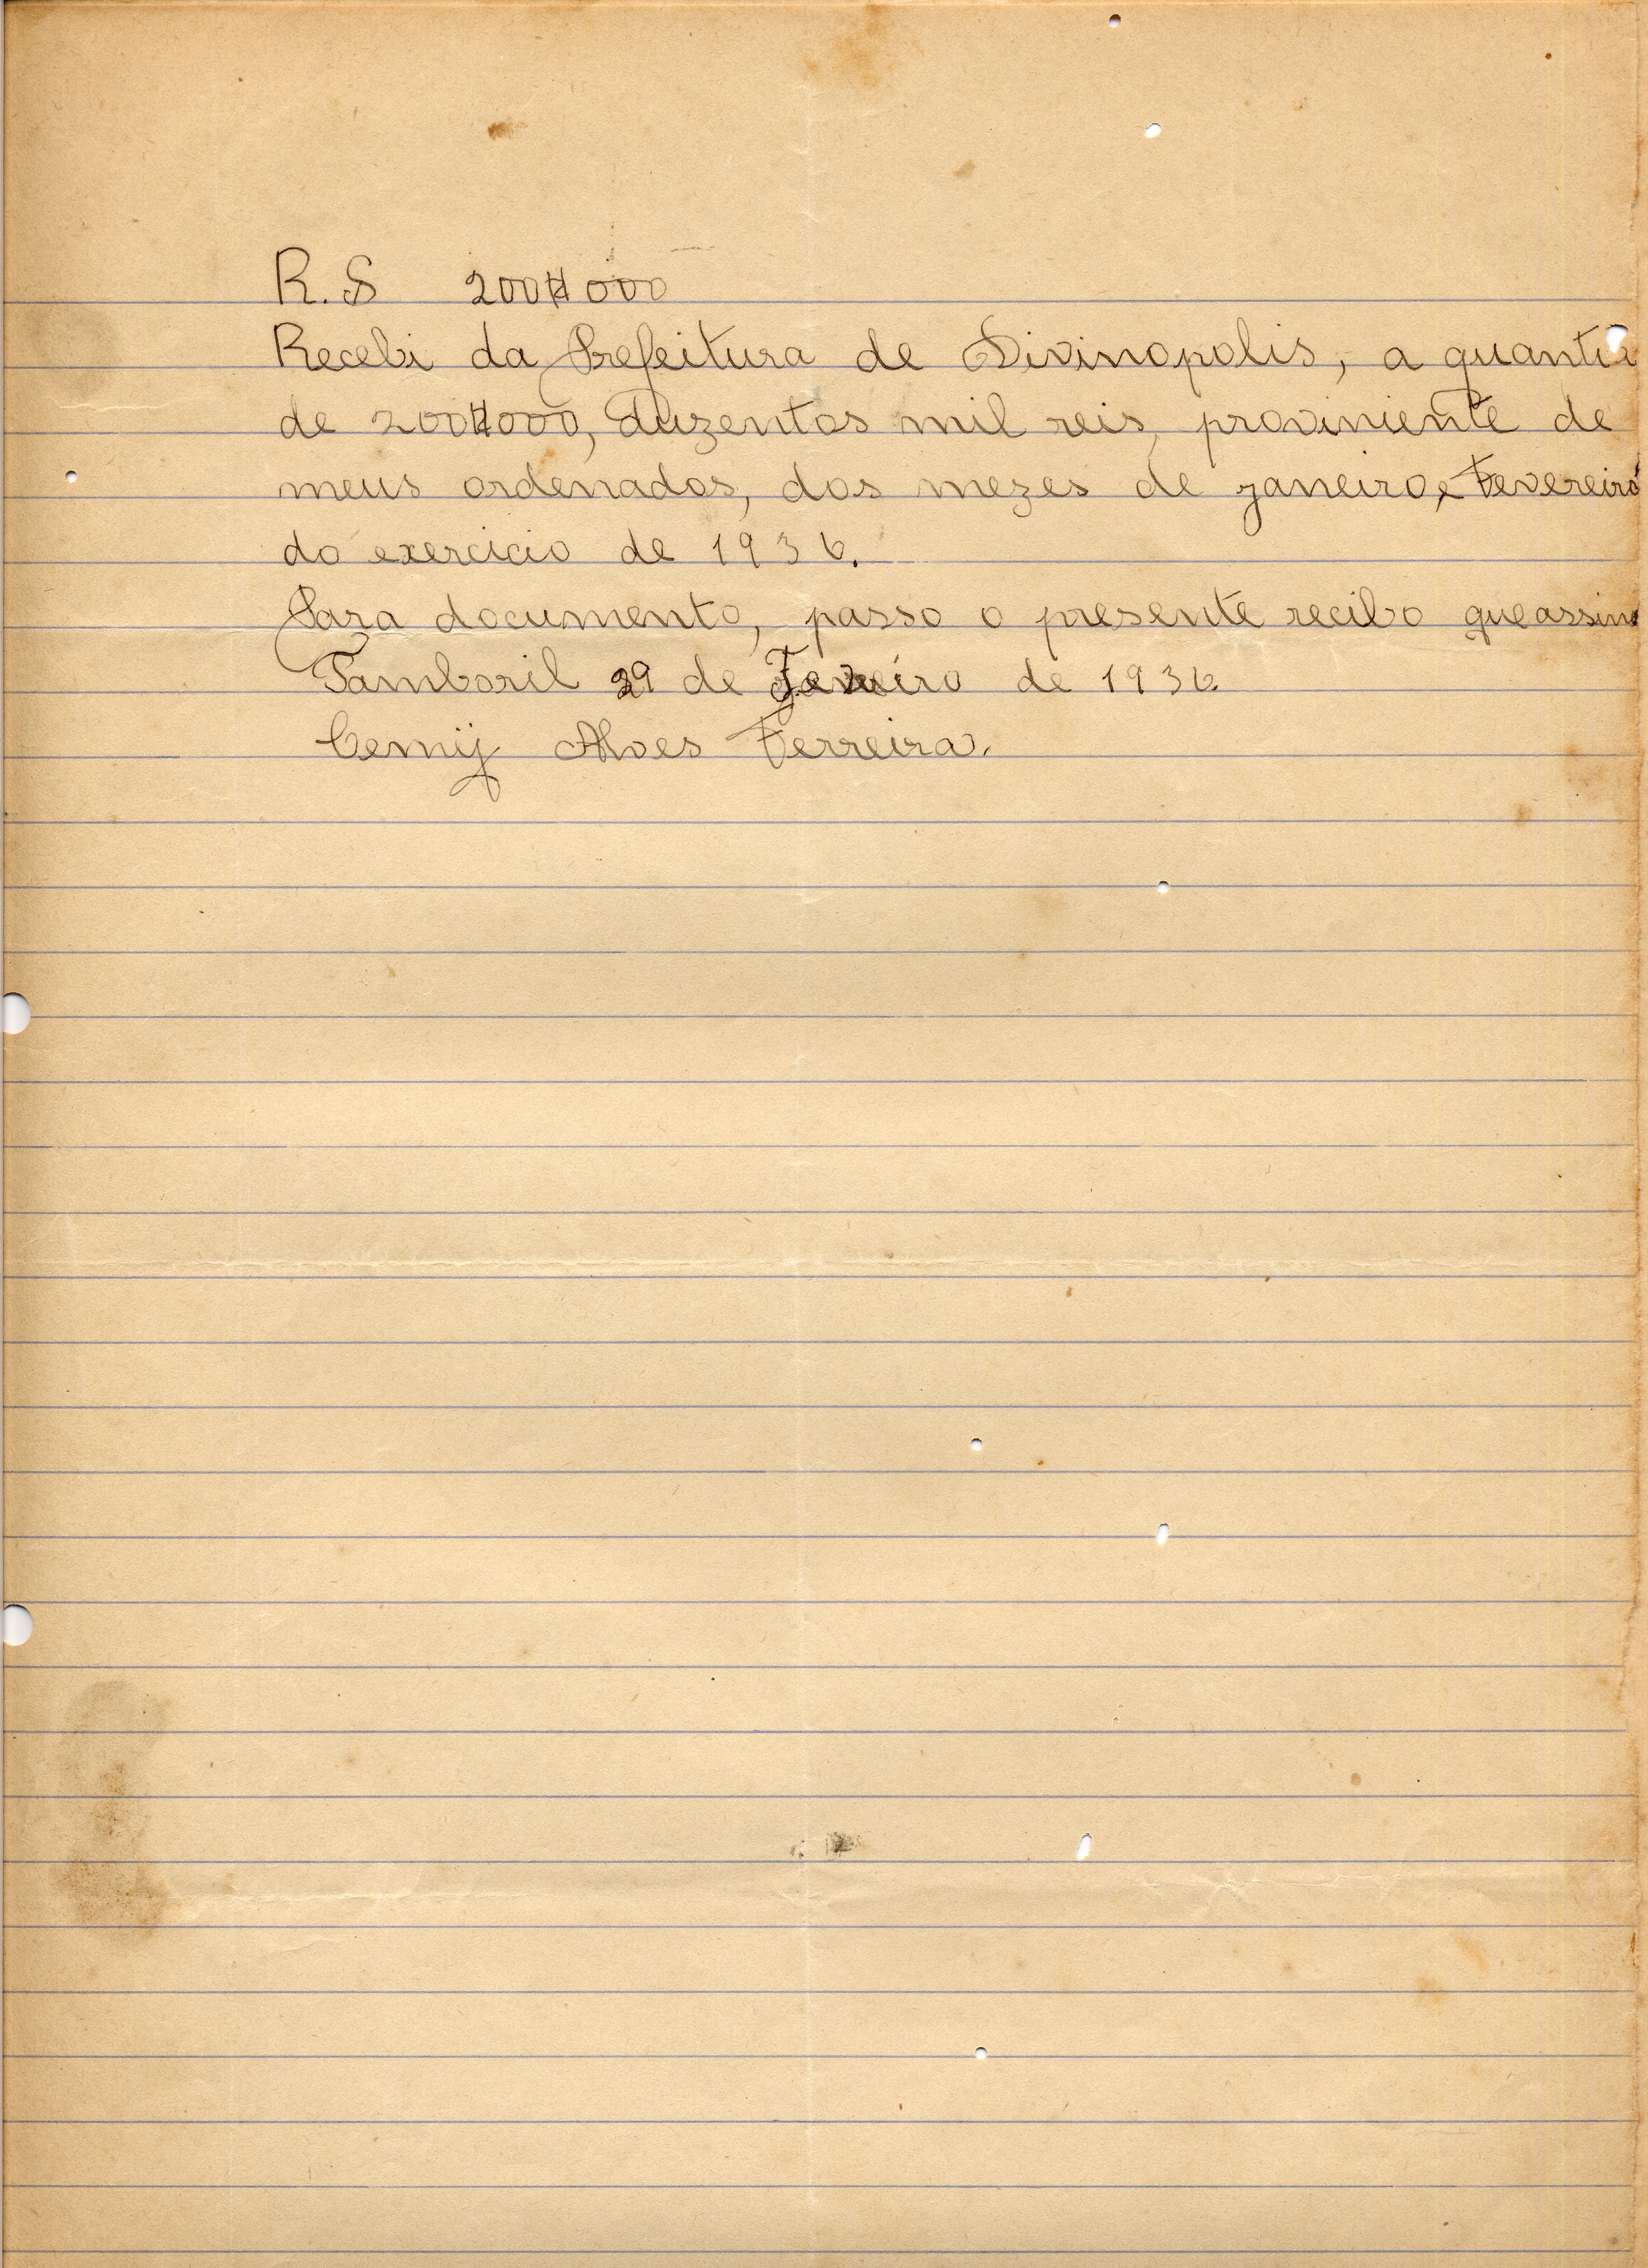 R.S 200$000
Recebi da Prefeitura de Divinopolis, a quantia
de 200$000, duzentos mil reis, proviniente de
meus ordenados, dos mezes de janeiro, e Fevereiro
do exercicio de 1936.
Para documento, passo o presente recibo que assino
Tamboril 29 de Fevereiro de 1936.
Alves Ferreira.